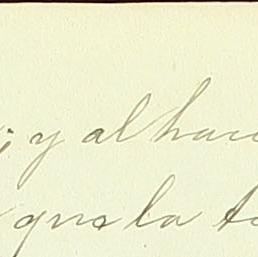 ; y al hac
que la t